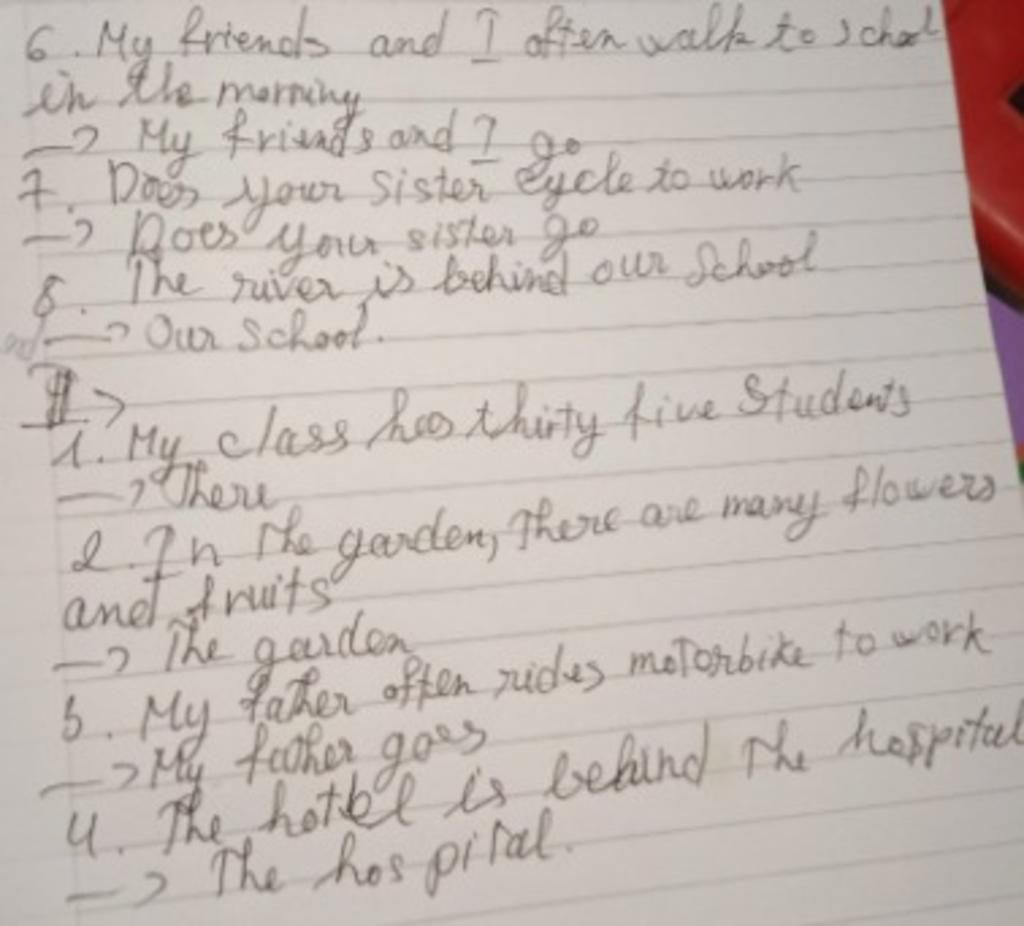 6. My friends and I often walk to school
in the morning
→ My friends and I go
7. Does your sister cycle to work
→ Does your sister go
8. The river is behind our school
→ Our school.
II>
1. My class has thirty five students
→ There
2. In the garden, there are many flowers
and fruits
→ The garden
3. My father often rides motorbike to work
→ My father goes
4. The hotel is behind the hospital
→ The hospital.